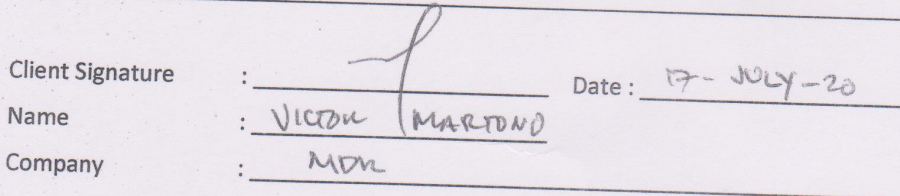 Client Signature : Date : 17 - JULY - 20
Name : VICTOR MARTONO
Company : MDR